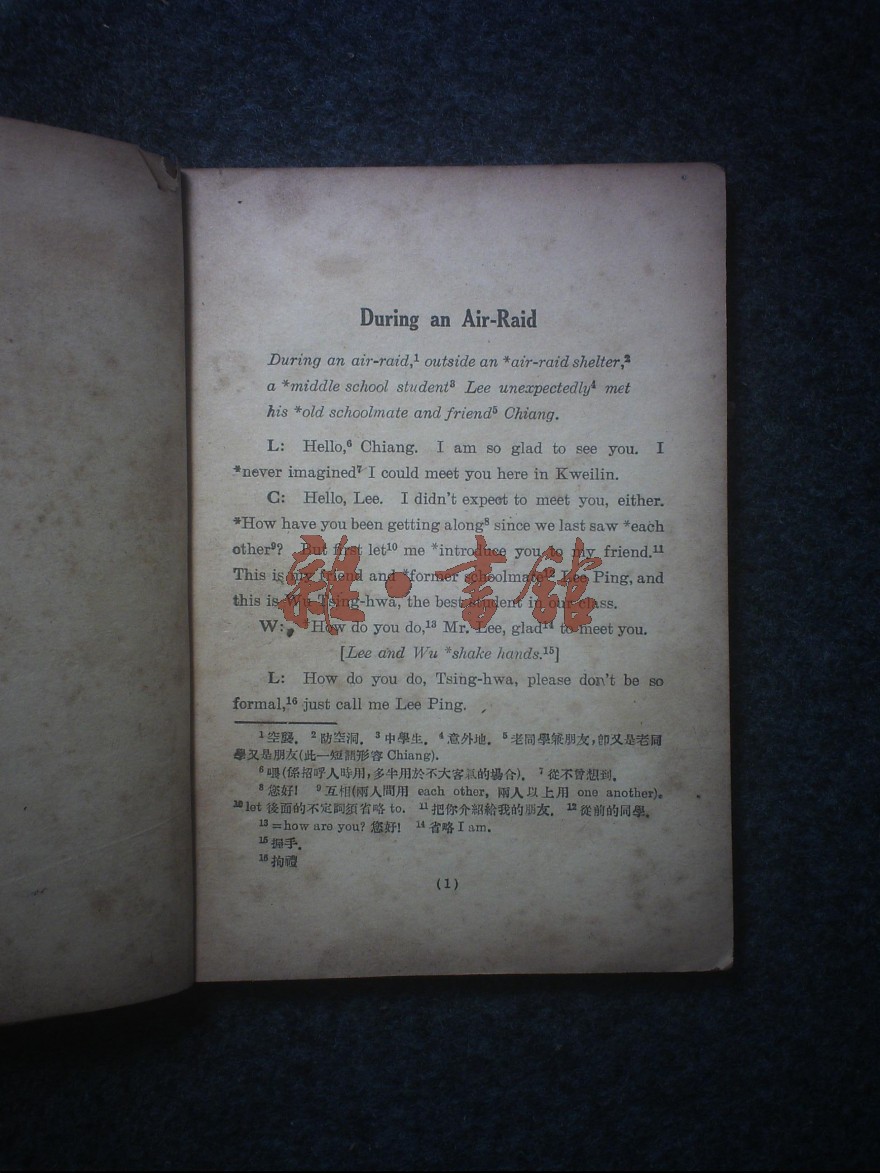 During an Air-Raid
During an air-raid,¹ outside an *air-raid shelter,²
a *middle school student³ Lee unexpectedly⁴ met
his *old schoolmate and friend⁵ Chiang.
L: Hello,⁶ Chiang. I am so glad to see you. I
*never imagined⁷ I could meet you here in Kweilin.
C: Hello, Lee. I didn't expect to meet you, either.
*How have you been getting along⁸ since we last saw *each
other⁹? But first let¹⁰ me *introduce you to my friend.¹¹
This is my friend and *former schoolmate¹² Lee Ping, and
this is Wu Tsing-hwa, the best student in our class.
W: *How do you do,¹³ Mr. Lee, glad¹⁴ to meet you.
[Lee and Wu *shake hands.¹⁵]
L: How do you do, Tsing-hwa, please don't be so
formal,¹⁶ just call me Lee Ping.
¹空襲. ²防空洞. ³中學生. ⁴意外地. ⁵老同學兼朋友,卽又是老同
學又是朋友(此一短語形容 Chiang).
⁶喂(係招呼人時用,多半用於不大客氣的場合). ⁷從不曾想到.
⁸您好! ⁹互相(兩人間用 each other, 兩人以上用 one another).
¹⁰let 後面的不定詞須省略 to. ¹¹把你介紹給我的朋友. ¹²從前的同學.
¹³=how are you? 您好! ¹⁴省略 I am.
¹⁵握手.
¹⁶拘禮
(1)
雜·書館